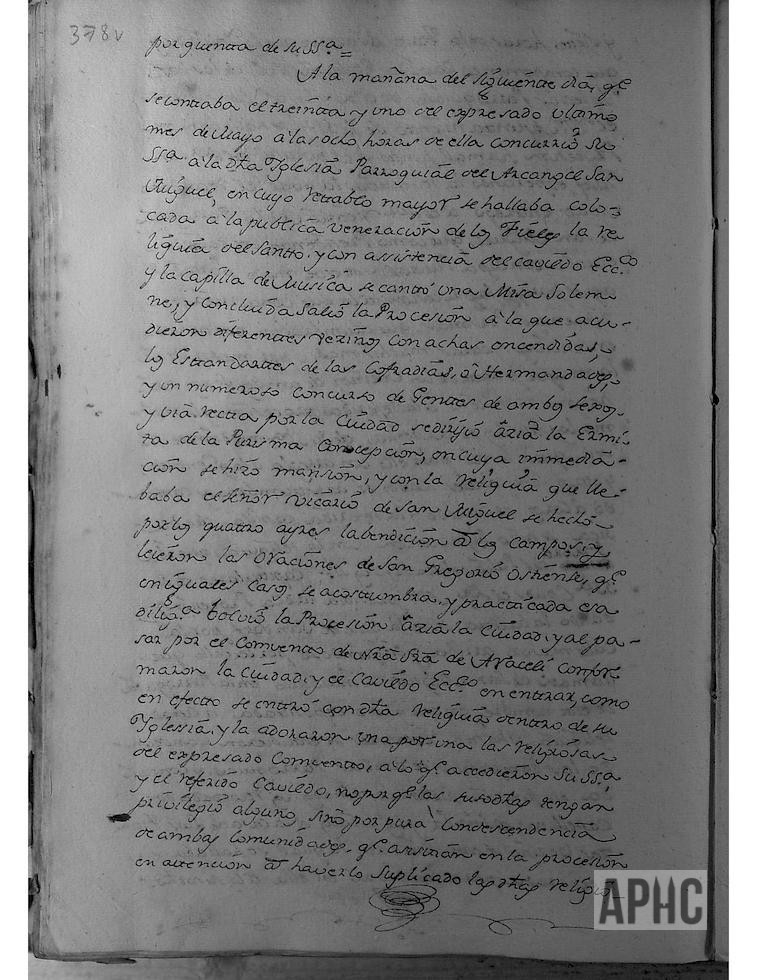 378v
por quenta de su SSª =
A la mañana del siguiente dia, qᵉ
se contaba el treinta y uno del expresado ultimo
mes de Mayo a las ocho horas de ella concurrió su
SSª a la dha Yglesia Parroquial del Arcangel San
Miguel, en cuyo retablo mayor se hallaba colo-
cada a la publica veneracion de los Fieles la re
liquia del santo, y con assistencia del cavildo Eccᶜᵒ
y la capilla de Musica se cantó una Misa solem
ne, y concluida salió la Procesion a la que acu-
dieron diferentes vezinos con achas encendidas,
los Estandartes de las Cofradias, o Hermandades,
y un numeroso concurso de Gentes de ambos sexos,
y via recta por la Ciudad se dirijió àzia la Ermi-
ta de la Purisma Concepcion, en cuya immedia-
cion se hizo mansion, y con la reliquia que lle-
baba el señor Vicario de San Miguel se hechó
por los quatro ayres la bendicion â los campos, y
leieron las Oraciones de San Gregorio Ostiense, qᵉ
en iguales casos se acostumbra, y practicada esa
diligª bolvió la Procesion âzia la Ciudad, y al pa-
sar por el Convento de Nrà Srà de Araceli confor
maron la Ciudad, y el Cavildo Eccᶜᵒ en entrar, como
en efecto se entró con dha reliquia dentro de su
Yglesia, y la adoraron una por una las religiosas
del expresado Convento, a lo qᵉ accedieron su SSª
y el referido Cavildo, no porqᵉ las susodhas tengan
privilegio alguno, sino por pura condescendencia
de ambas Comunidades, qᵉ asistian en la procesion
en atencion â haverlo suplicado las dhas religio
APHC